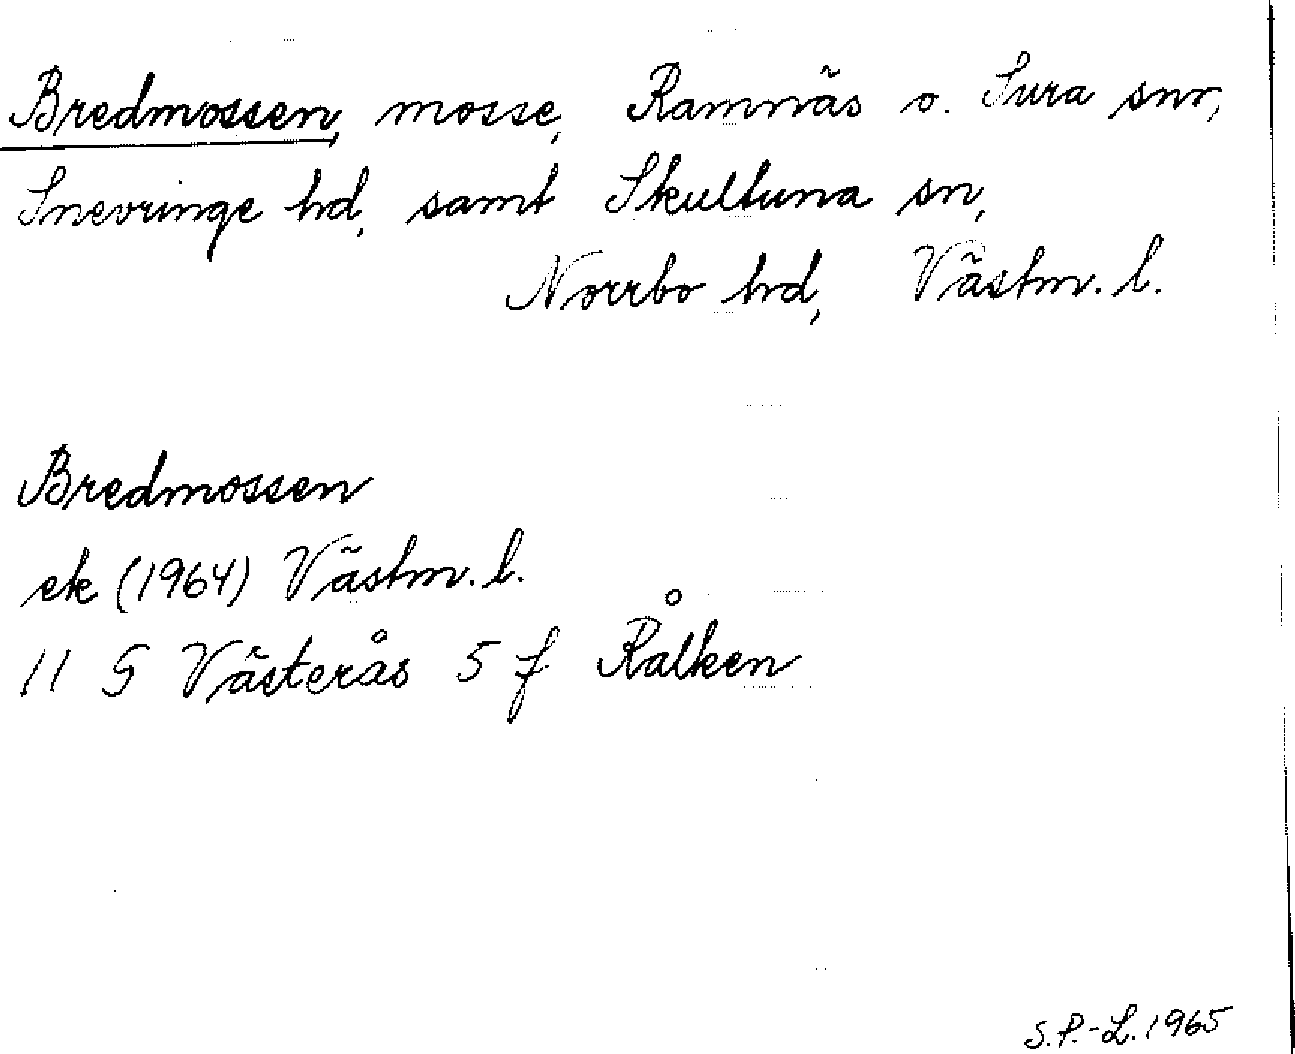 Bredmossen, mosse, Ramnäs o. Sura snr,
Snevringe hd, samt Skultuna sn,
Norrbo hd, Västm. l.
Bredmossen
ek (1964) Västm. l.
11 G Västerås 5 f Rålken
S.P.-L. 1965